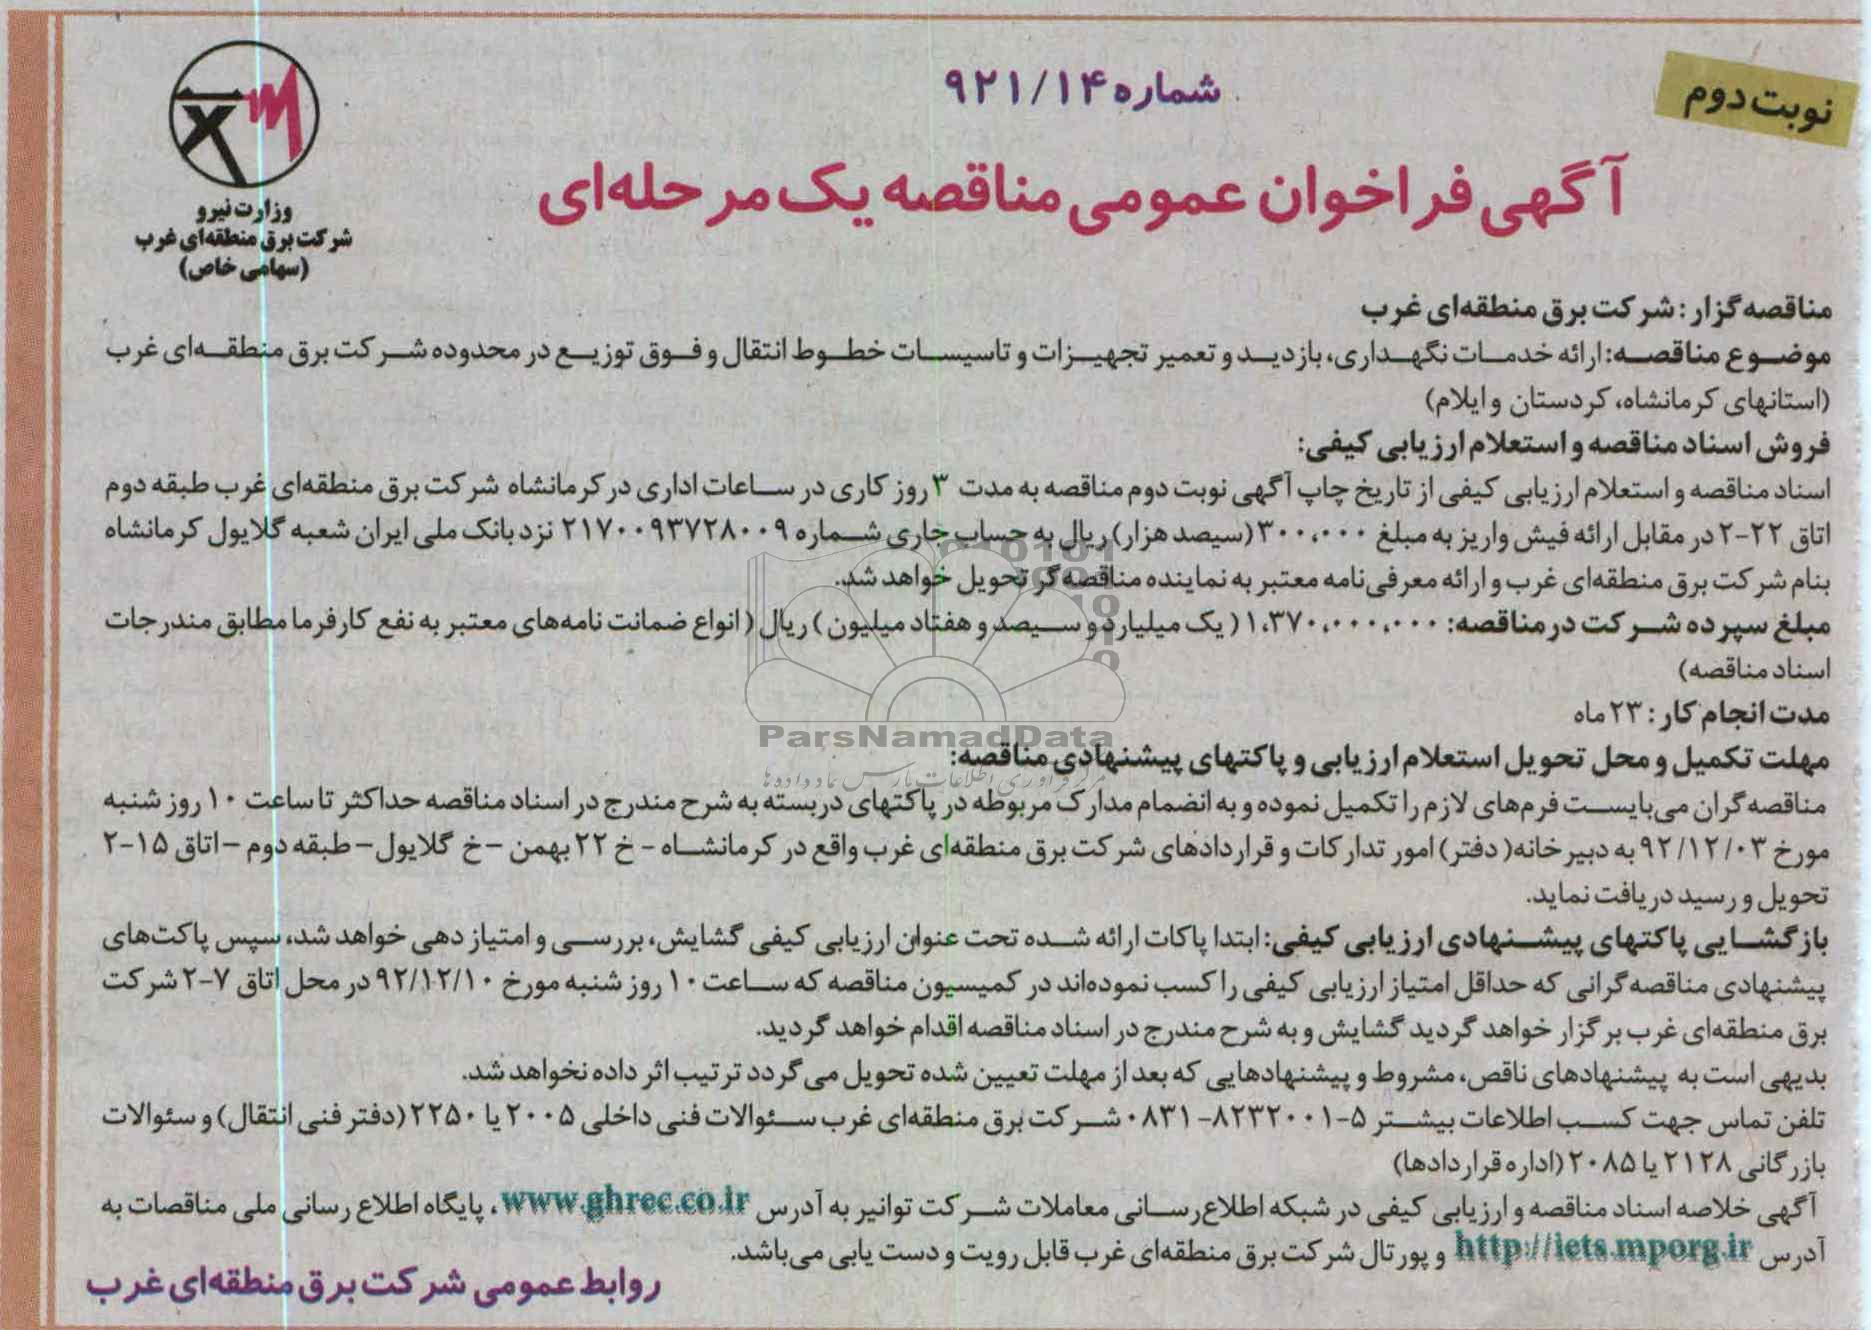 نوبت دوم
شماره ۹۲۱/۱۴
آگهی فراخوان عمومی مناقصه یک مرحله‌ای
وزارت نیرو
شرکت برق منطقه‌ای غرب
(سهامی خاص)
مناقصه گزار: شرکت برق منطقه‌ای غرب
موضوع مناقصه: ارائه خدمات نگهداری، بازدید و تعمیر تجهیزات و تاسیسات خطوط انتقال و فوق توزیع در محدوده شرکت برق منطقه‌ای غرب
(استانهای کرمانشاه، کردستان و ایلام)
فروش اسناد مناقصه و استعلام ارزیابی کیفی:
اسناد مناقصه و استعلام ارزیابی کیفی از تاریخ چاپ آگهی نوبت دوم مناقصه به مدت ۳ روز کاری در ساعات اداری در کرمانشاه شرکت برق منطقه‌ای غرب طبقه دوم
اتاق ۲۲-۲ در مقابل ارائه فیش واریز به مبلغ ۳۰۰،۰۰۰ (سیصد هزار) ریال به حساب جاری شماره ۲۱۷۰۰۹۳۷۲۸۰۰۹ نزد بانک ملی ایران شعبه گلایول کرمانشاه
بنام شرکت برق منطقه‌ای غرب و ارائه معرفی‌نامه معتبر به نماینده مناقصه گر تحویل خواهد شد.
مبلغ سپرده شرکت در مناقصه: ۱،۳۷۰،۰۰۰،۰۰۰ ( یک میلیارد و سیصد و هفتاد میلیون ) ریال ( انواع ضمانت نامه‌های معتبر به نفع کارفرما مطابق مندرجات
اسناد مناقصه)
مدت انجام کار: ۲۳ ماه
ParsNamadData
مهلت تکمیل و محل تحویل استعلام ارزیابی و پاکتهای پیشنهادی مناقصه:
مناقصه گران می‌بایست فرم‌های لازم را تکمیل نموده و به انضمام مدارک مربوطه در پاکتهای دربسته به شرح مندرج در اسناد مناقصه حداکثر تا ساعت ۱۰ روز شنبه
مورخ ۹۲/۱۲/۰۳ به دبیرخانه( دفتر) امور تدارکات و قراردادهای شرکت برق منطقه‌ای غرب واقع در کرمانشاه - خ ۲۲ بهمن – خ گلایول – طبقه دوم – اتاق ۱۵-۲
تحویل و رسید دریافت نماید.
بازگشایی پاکتهای پیشنهادی ارزیابی کیفی: ابتدا پاکات ارائه شده تحت عنوان ارزیابی کیفی گشایش، بررسی و امتیاز دهی خواهد شد، سپس پاکت‌های
پیشنهادی مناقصه گرانی که حداقل امتیاز ارزیابی کیفی را کسب نموده‌اند در کمیسیون مناقصه که ساعت ۱۰ روز شنبه مورخ ۹۲/۱۲/۱۰ در محل اتاق ۷-۲ شرکت
برق منطقه‌ای غرب برگزار خواهد گردید گشایش و به شرح مندرج در اسناد مناقصه اقدام خواهد گردید.
بدیهی است به پیشنهادهای ناقص، مشروط و پیشنهادهایی که بعد از مهلت تعیین شده تحویل می گردد ترتیب اثر داده نخواهد شد.
تلفن تماس جهت کسب اطلاعات بیشتر ۵-۸۲۳۲۰۰۱-۰۸۳۱ شرکت برق منطقه‌ای غرب سئوالات فنی داخلی ۲۰۰۵ یا ۲۲۵۰ (دفتر فنی انتقال) و سئوالات
بازرگانی ۲۱۲۸ یا ۲۰۸۵ (اداره قراردادها)
آگهی خلاصه اسناد مناقصه و ارزیابی کیفی در شبکه اطلاع‌رسانی معاملات شرکت توانیر به آدرس www.ghrec.co.ir، پایگاه اطلاع رسانی ملی مناقصات به
آدرس http://iets.mporg.ir و پورتال شرکت برق منطقه‌ای غرب قابل رویت و دست یابی می‌باشد.
روابط عمومی شرکت برق منطقه‌ای غرب